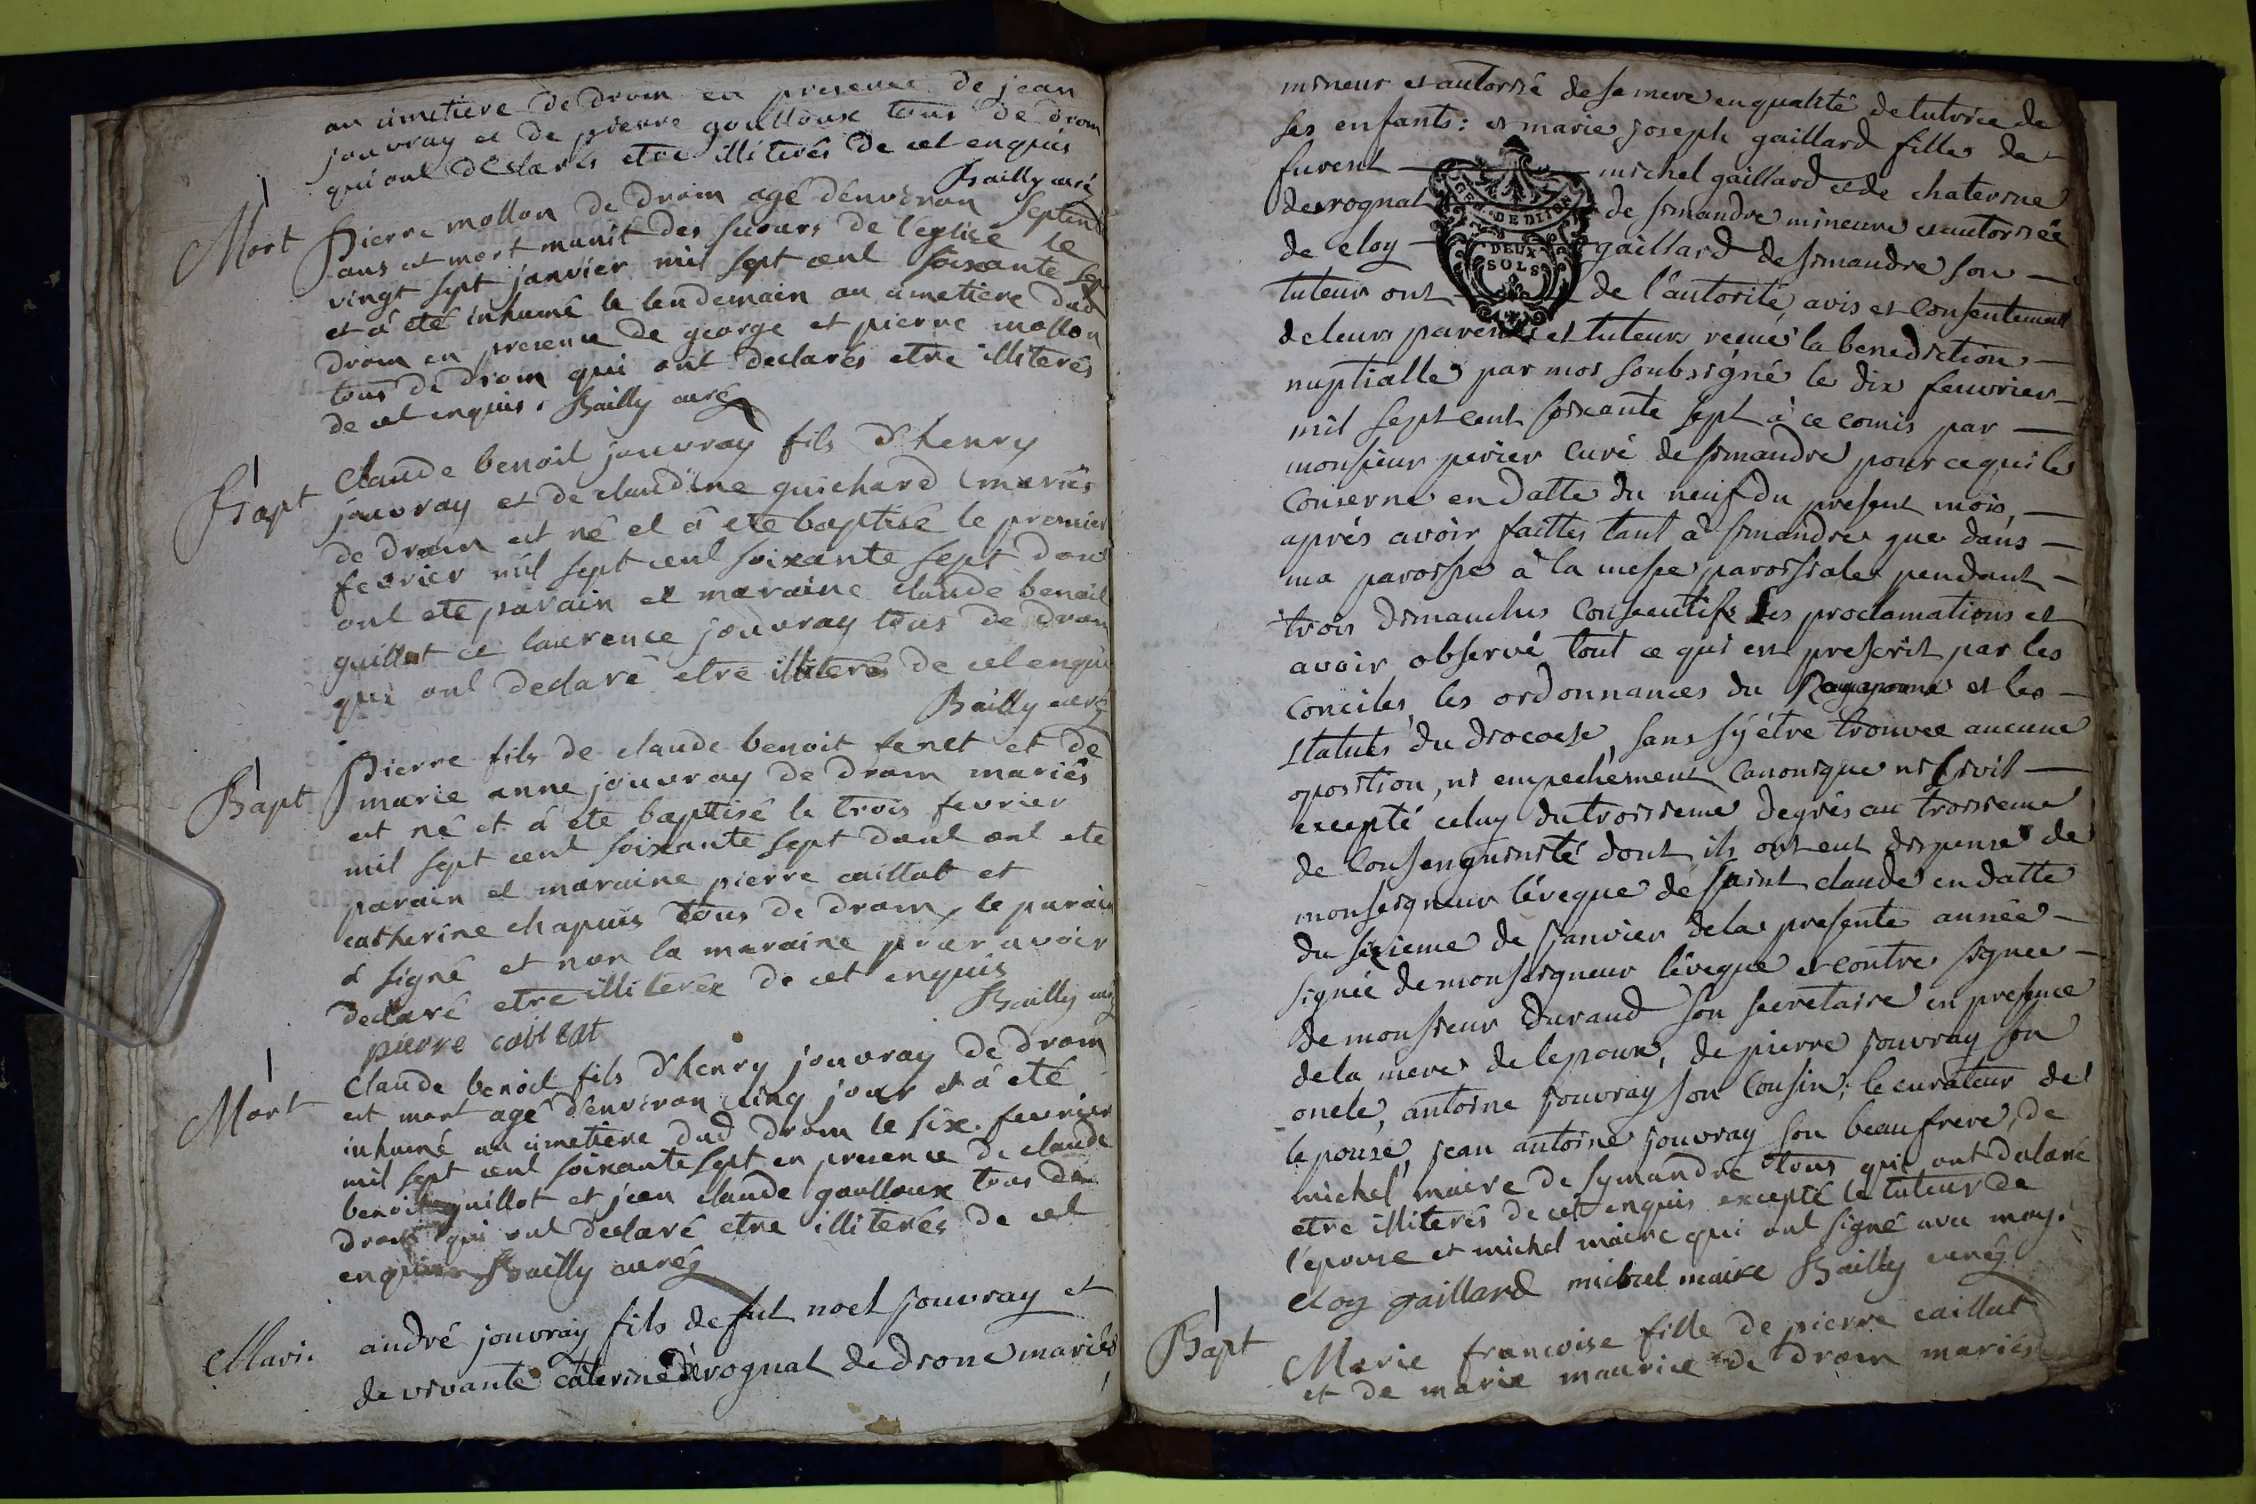 au cimetiere de drom en presence de jean
jouvray et de pierre goulloux tous de drom
qui ont declarés etre illiterés de cet enquis
Bailly curé
Mort
Pierre mollon de drom agé d'environ septente
ans est mort munit des secours de l'eglise le
vingt sept janvier mil sept cent soixante sept
et à été inhumé le lendemain au cimetiere dud
drom en presence de george et pierre mollon
tous de drom qui ont declarés etre illiterés
de cet enquis. Bailly curé
Bapt
Claude benoit jouvray fils d'henry
jouvray et de claudine guichard mariés
de drom est né et à ete baptisé le premier
fevrier mil sept cent soixante sept dont
ont ete parain et maraine claude benoit
guillot et laurence jouvray tous de drom
qui ont declaré etre illiterés de cet enquis
Bailly curé
Bapt
Pierre fils de claude benoit fenet et de
marie anne jouvray de drom mariés
est né et à ete baptisé le trois fevrier
mil sept cent soixante sept dont ont ete
parain et maraine pierre caillat et
catherine chapuis tous de drom, le parain
à signé et non la maraine pour avoir
declaré etre illiterée de cet enquis
Bailly curé
pierre caillat
Mort
Claude benoit fils d'henry jouvray de drom
est mort agé d'environ cinq jour et à eté
inhumé au cimetiere dud drom le six fevrier
mil sept cent soixante sept en presence de claude
benoit guillot et jean claude goulloux tous de
drom qui ont declaré etre illiterés de cet
enquis Bailly curé
Mari.
andré jouvray fils de fut noel jouvray et
de vivante caterine derognat de drone mariés
mineur et autorisé de sa mere en qualité de tutrice de
ses enfants: et marie joseph gaillard fille de
furent michel gaillard et de chaterine
derognat de simandre mineure et autorisée
de eloy gaillard de simandre son
tuteur ont de l'autorité, avis et consentement
de leurs parents et tuteurs reçue la benediction
nuptialle par moi soubsigné le dix feuvrier
mil sept cent soixante sept à ce comis par
monsieur perier curé de simandre pour ce qui le
conserne en datte du neuf du present mois,
aprés avoir faittes tant à simandre que dans
ma paroisse à la messe paroissiale pendant
trois dimanches consecutifs les proclamations et
avoir observé tout ce qui est prescrit par les
conciles, les ordonnances du Royaume et les
statuts du diocoese, sans s'y étre trouvee aucune
oposition, ni empechement canonique ni civil
excepté celuy du troisieme degrés au troisieme
de consenguinité dont ils ont eut dispense de
monseigneur l'éveque de saint claude en datte
du sixieme de janvier de la presente année
signée de monseigneur l'évegue et contre signee
de monsieur durand son secretaire en presence
de la mere de lepoux, de pierre jouvray son
oncle, antoine jouvray son cousin; le curateur de
lepouse, jean antoine jouvray son beau frere, de
michel maire de symandre tous qui ont declaré
etre illiterés de cet enquis excepté le tuteur de
l'épouse et michel maire qui ont signé avec moy.
eloy gaillard michel maire Bailly curé
Bapt
Marie francoise fille de pierre caillat
et de marie maurice de drom mariés
GEN. DE DIJON
DEUX
SOLS